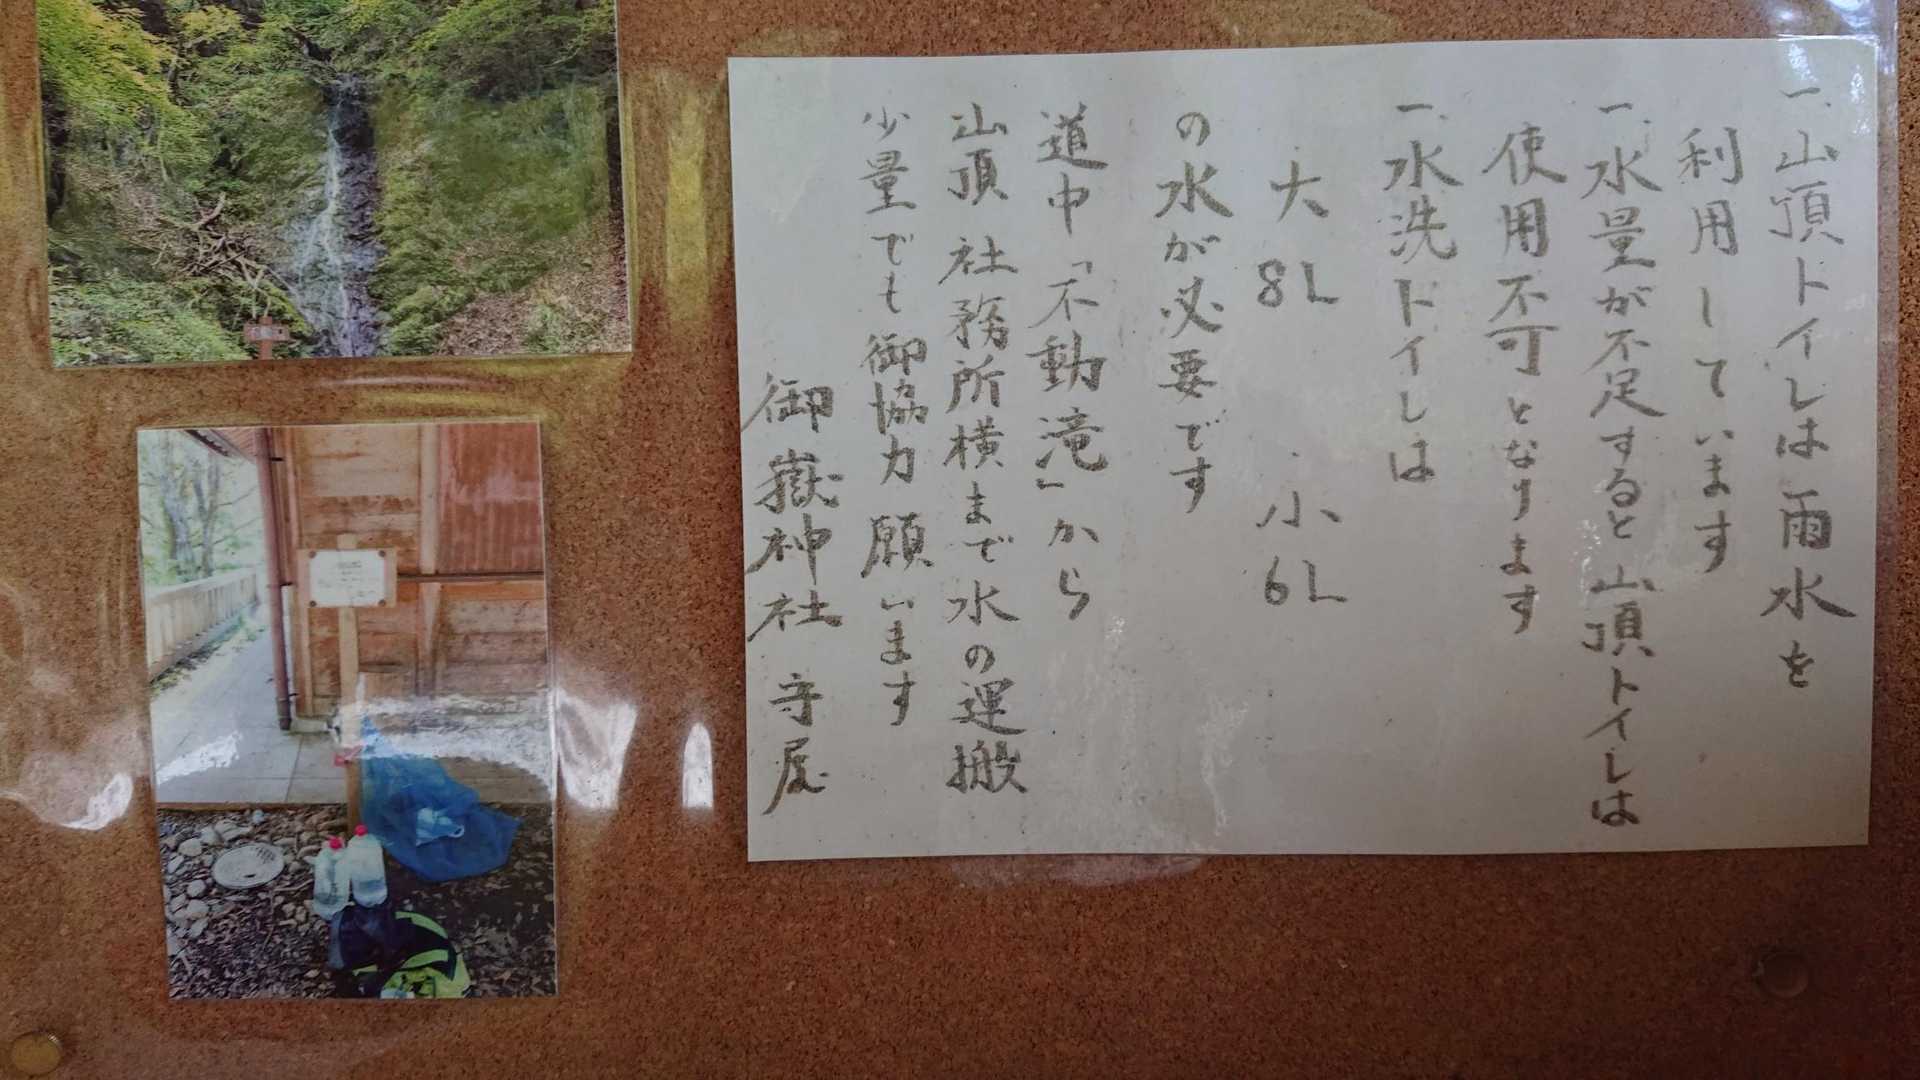 一、山頂トイレは雨水を
利用しています
一、水量が不足すると山頂トイレは
使用不可となります
一、水洗トイレは
大 8L 小 6L
の水が必要です
道中「不動滝」から
山頂 社務所横まで水の運搬
少量でも御協力願います
御嶽神社 寺屋